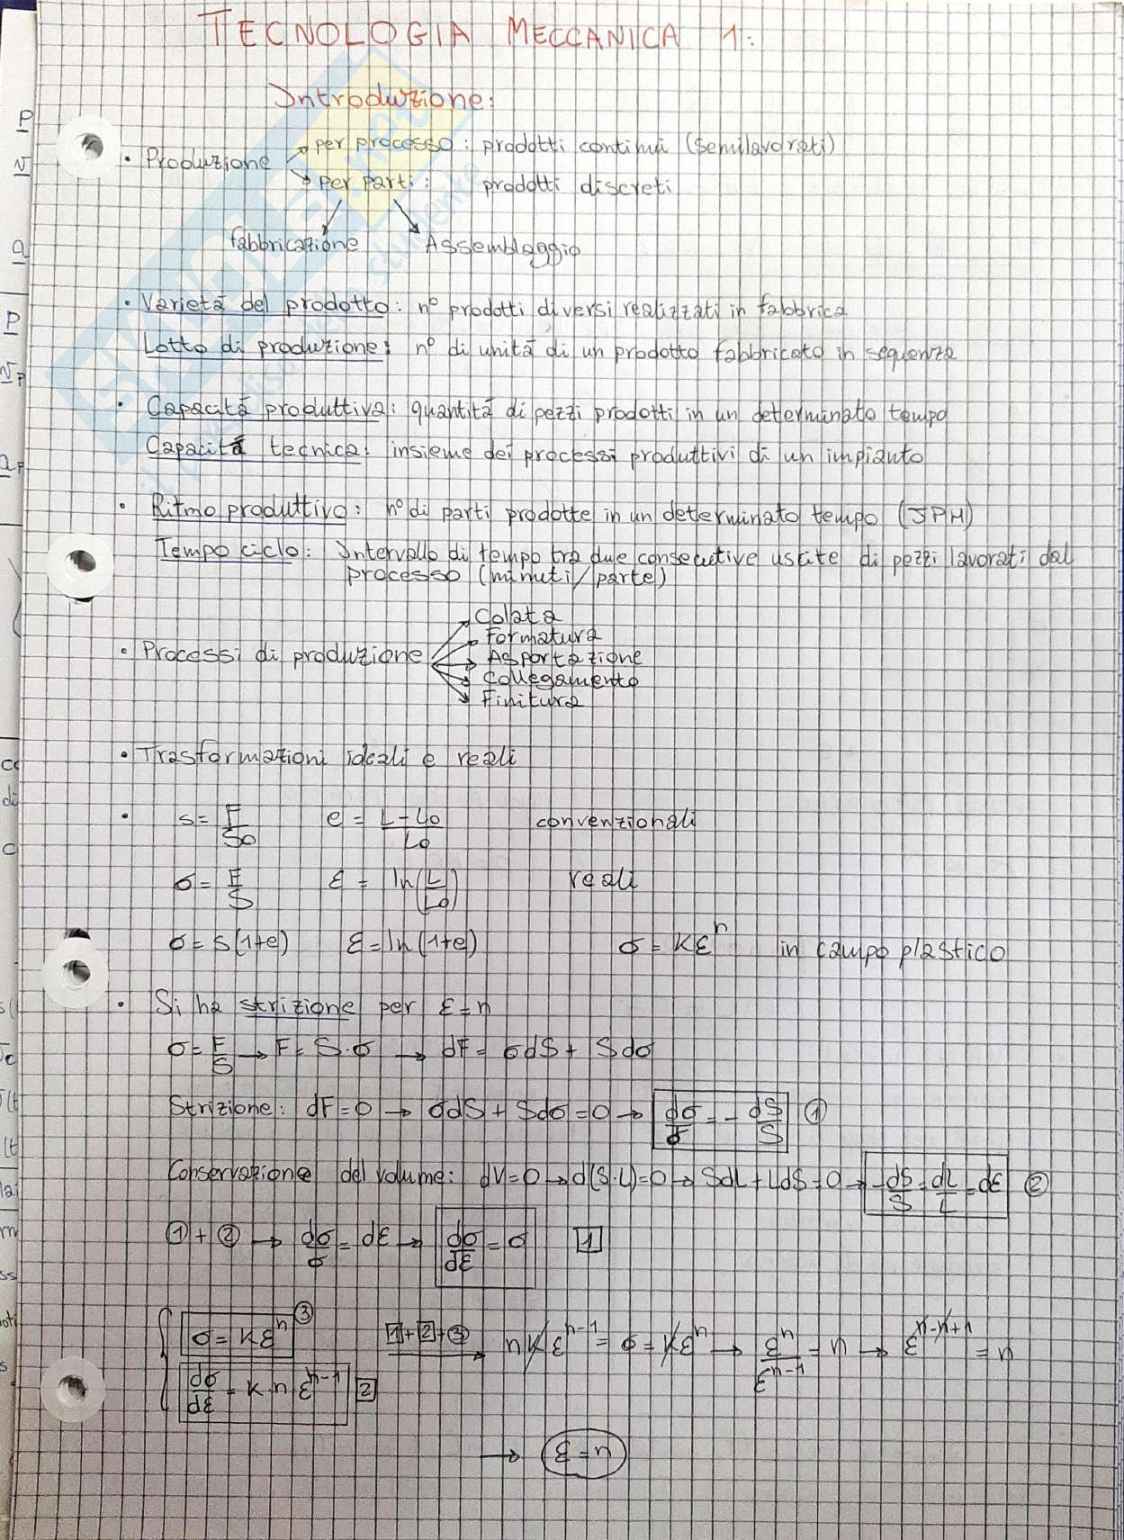 TECNOLOGIA MECCANICA 1:
Introduzione:
• Produzione → per processo: prodotti continui (semilavorati)
→ per parti: prodotti discreti
fabbricazione Assemblaggio
• Varietà del prodotto: n° prodotti diversi realizzati in fabbrica
Lotto di produzione: n° di unità di un prodotto fabbricato in sequenza
• Capacità produttiva: quantità di pezzi prodotti in un determinato tempo
Capacità tecnica: insieme dei processi produttivi di un impianto
• Ritmo produttivo: n° di parti prodotte in un determinato tempo (JPH)
Tempo ciclo: Intervallo di tempo tra due consecutive uscite di pezzi lavorati dal
processo (minuti/parte)
Colata
Formatura
• Processi di produzione → Asportazione
Collegamento
Finitura
• Trasformazioni ideali e reali
• s = F/S0 e = L-L0/L0 convenzionali
σ = F/S ε = ln(L/L0) reali
σ = s(1+e) ε = ln(1+e) σ = kε^n in campo plastico
• Si ha strizione per ε=n
σ = F/S → F = S·σ → dF = σdS + Sdσ
Strizione: dF=0 → σdS + Sdσ = 0 → dσ/σ = - dS/S ①
Conservazione del volume: dV=0 → d(S·L)=0 → SdL + LdS = 0 → -dS/S = dL/L = dε ②
① + ② → dσ/σ = dε → dσ/dε = σ [1]
σ = kε^n ③ [1]+[2]+③ → n k ε^n-1 = σ = kε^n → ε^n/ε^n-1 = n → ε^n-n+1 = n
dσ/dε = k·n·ε^n-1 [2]
→ ε = n